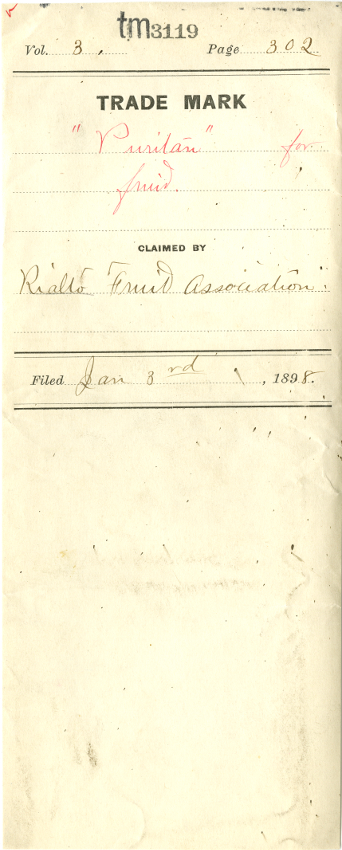 tm3119
Vol. 3, Page 302
TRADE MARK
"Puritan" for
fruit.
CLAIMED BY
Rialto Fruit Association.
Filed Jan 3rd, 1898.